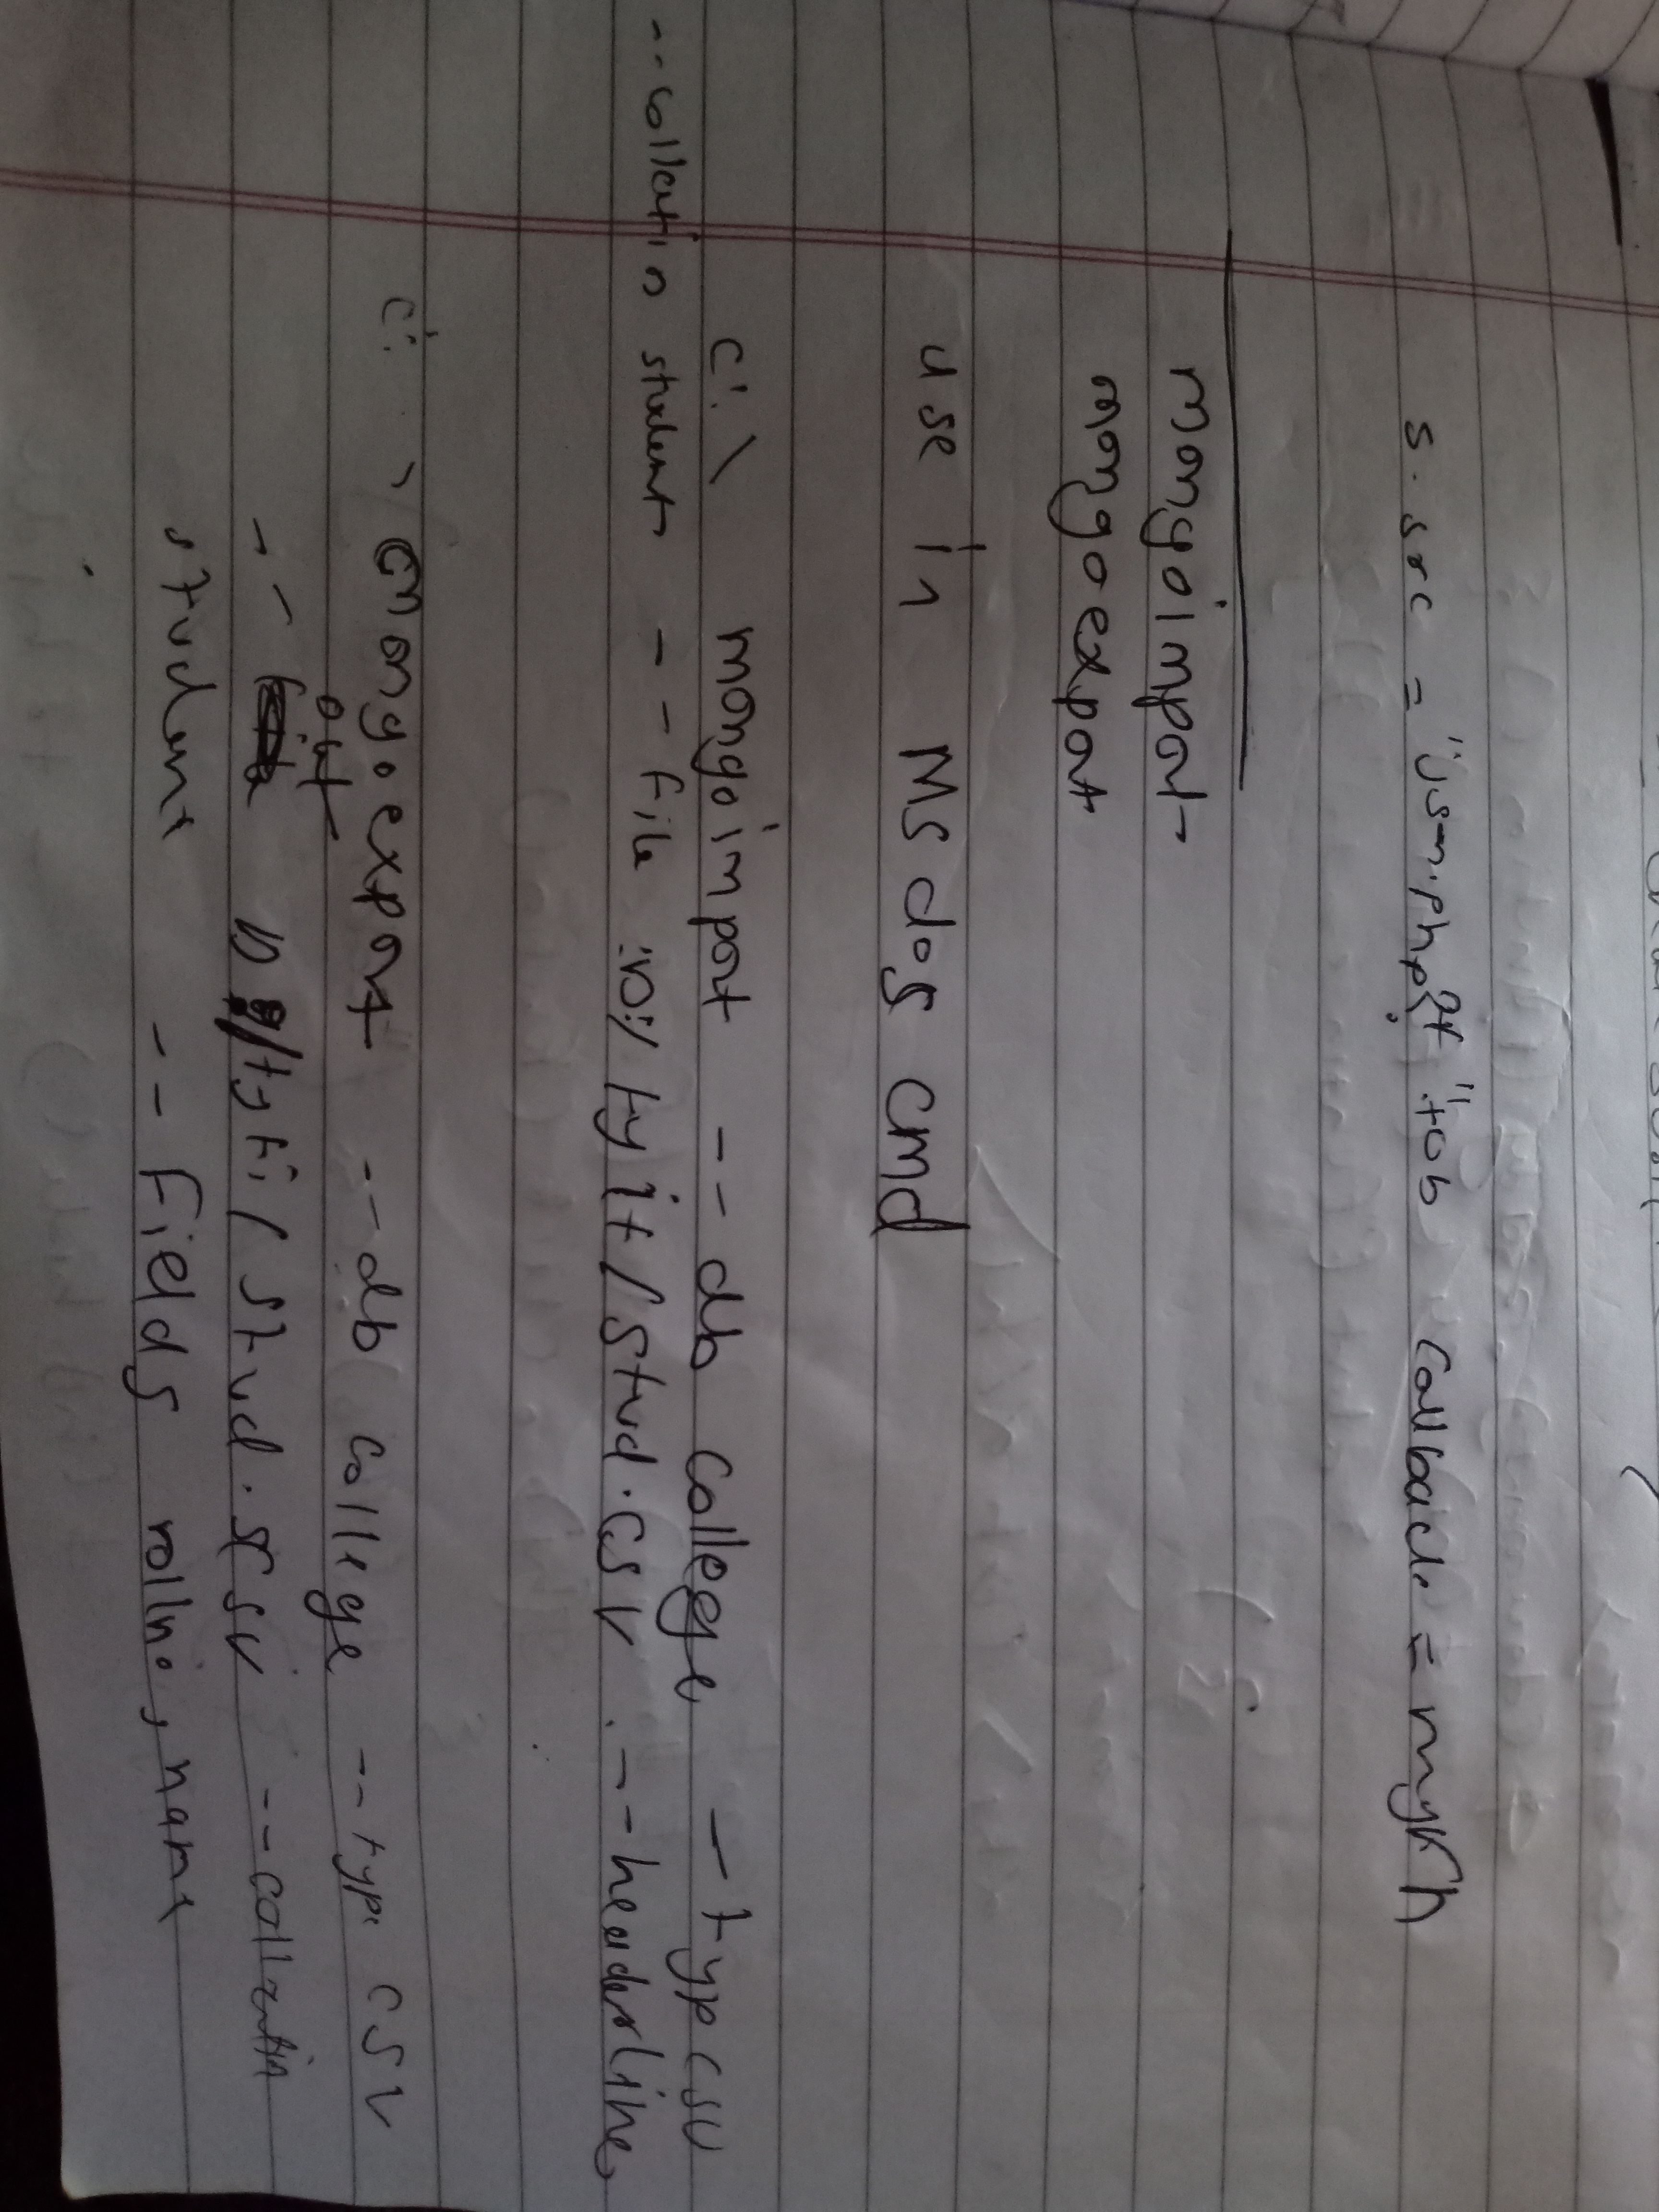 s.src = "jsm.php?t "tob callback = myFn
mongoimport
mongoexport
use in MSdos cmd
c:\ mongoimport --db college -type csv
--collection student --file tyit/stud.csv --headerline
c:\ mongoexport --db college --type csv
out
-- D /tyit/stud.csv --collection
student --fields rollno, name